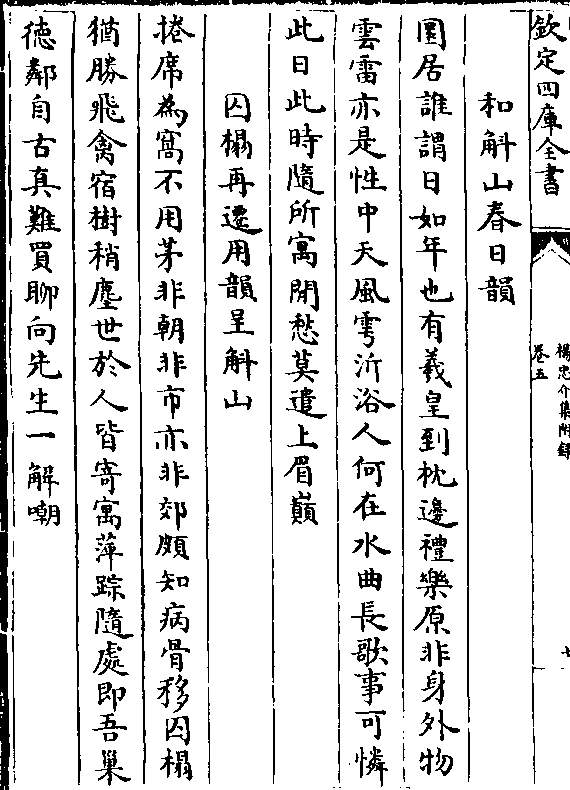 欽定四庫全書
楊忠介集附録
卷五
七
和斛山春日韻
圜居誰謂日如年也有羲皇到枕邊禮樂原非身外物
雲雷亦是性中天風雩沂浴人何在水曲長歌事可憐
此日此時隨所寓閒愁莫遣上眉巔
囚榻再遷用韻呈斛山
捲席為窩不用茅非朝非市亦非郊頗知病骨移囚榻
猶勝飛禽宿樹稍塵世於人皆寄寓萍踪隨處即吾巢
徳鄰自古真難買聊向先生一解嘲